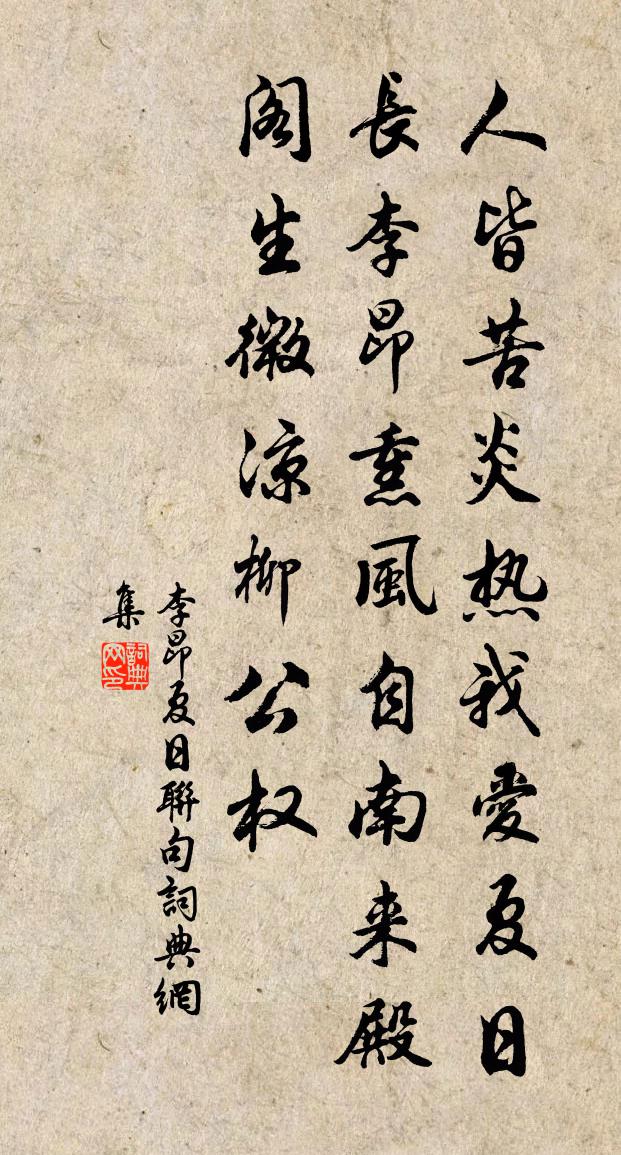 人皆苦炎热我愛夏日
長李昂熏風自南来殿
阁生微涼柳公权
李昂夏日聯句詞典網
集
詞典
网印